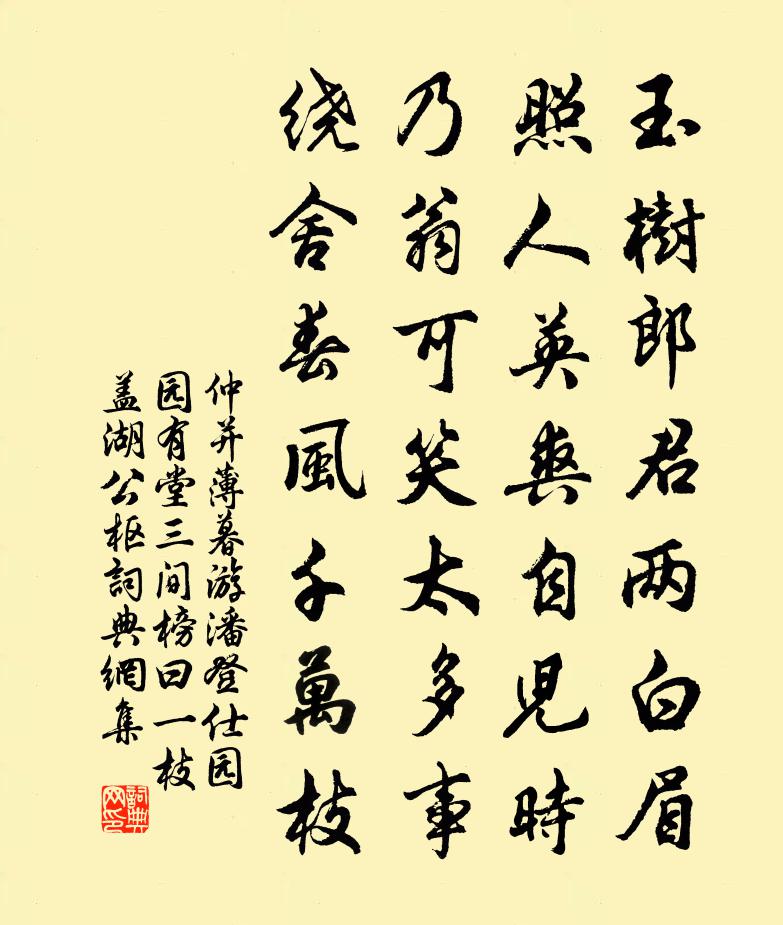 玉樹郎君两白眉
照人英爽自児時
乃翁可笑太多事
绕舍春風千萬枝
仲并薄暮游潘登仕园
园有堂三间榜曰一枝
盖湖公枢詞典網集
詞典网印